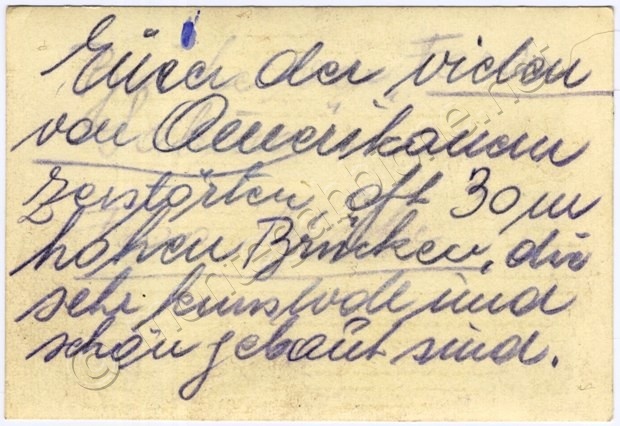 Einer der vielen
von Amerikanern
zerstörten, oft 30 m
hohen Brücken, die
sehr kunstvoll und
schön gebaut sind.